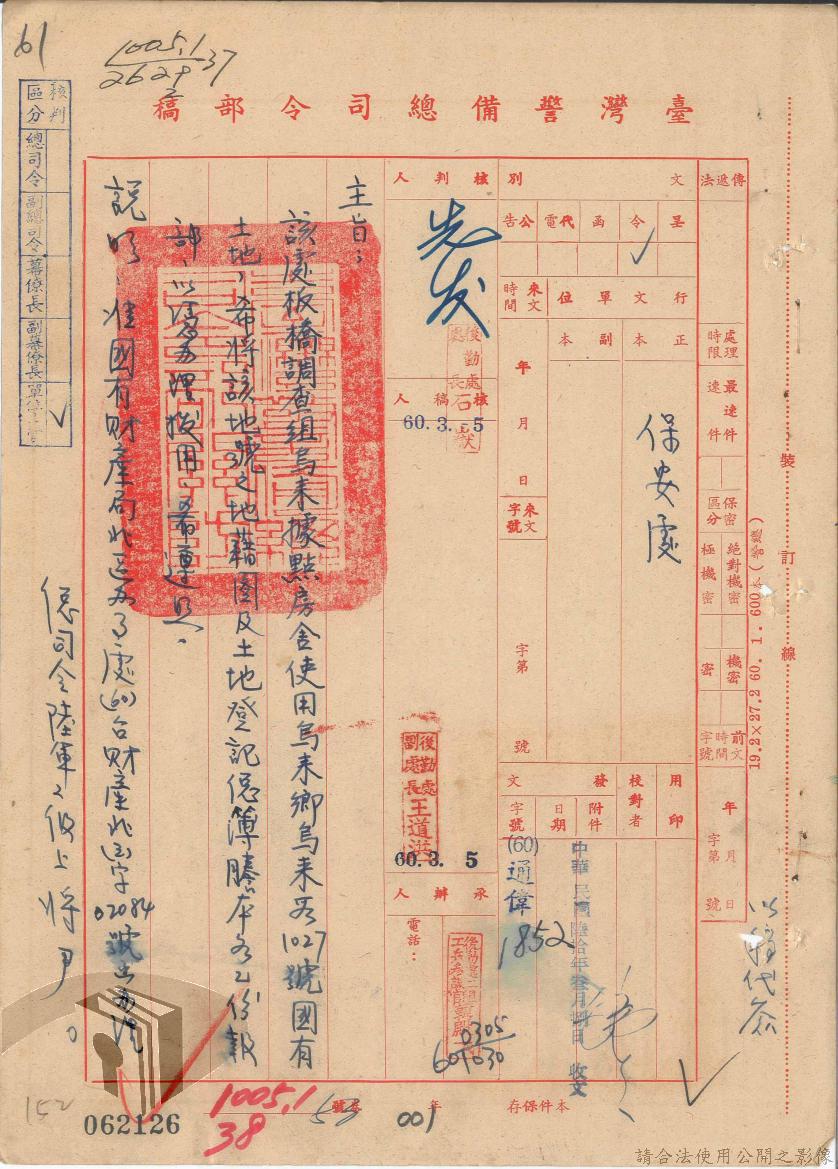 61
1005.1
2629
2
37
臺灣警備總司令部稿
核判區分
總司令
副總司令
幕僚長
副幕僚長
傳遞法
處理時限
最速件
速件
保密區分
絕對機密
極機密
機密
密
前文時間字號
年月日
字第
號
文別
呈
令
函
代電
公告
行文單位
正本
副本
保安處
來文時間
年
月
日
來文字號
字第
號
用印
校對者
發文
附件
日期
字號
(60)
通偉
1852
中華民國陸拾年叁月
日
收文
核判人
先發
後勤處處長石
核稿人
60.3.5
後勤處副處長王道洪
60.3.5
承辦人
電話:
0305
601030
主旨:
該處板橋調查組烏來據點房舍使用烏來鄉烏來段1027號國有
土地,希將該地號之地藉圖及土地登記總簿謄本各乙份報
部,以憑辦理撥用,希遵照。
說明:准國有財產局北區辦事處(60)台財產北
字
02084
號
總司令陸軍二級上將尹。
以稿代簽
裝訂線
19.2×27.2 60.1.600本
062126
152
1005.1
38
53
卷號
001
年
本件保存
請合法使用公開之影像